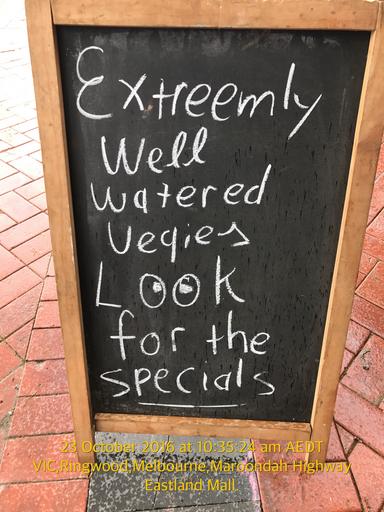 Extreemly
Well
watered
Vegies
Look
for the
specials
23 October 2016 at 10:35:24 am AEDT
VIC,Ringwood,Melbourne,Maroondah Highway
Eastland Mall